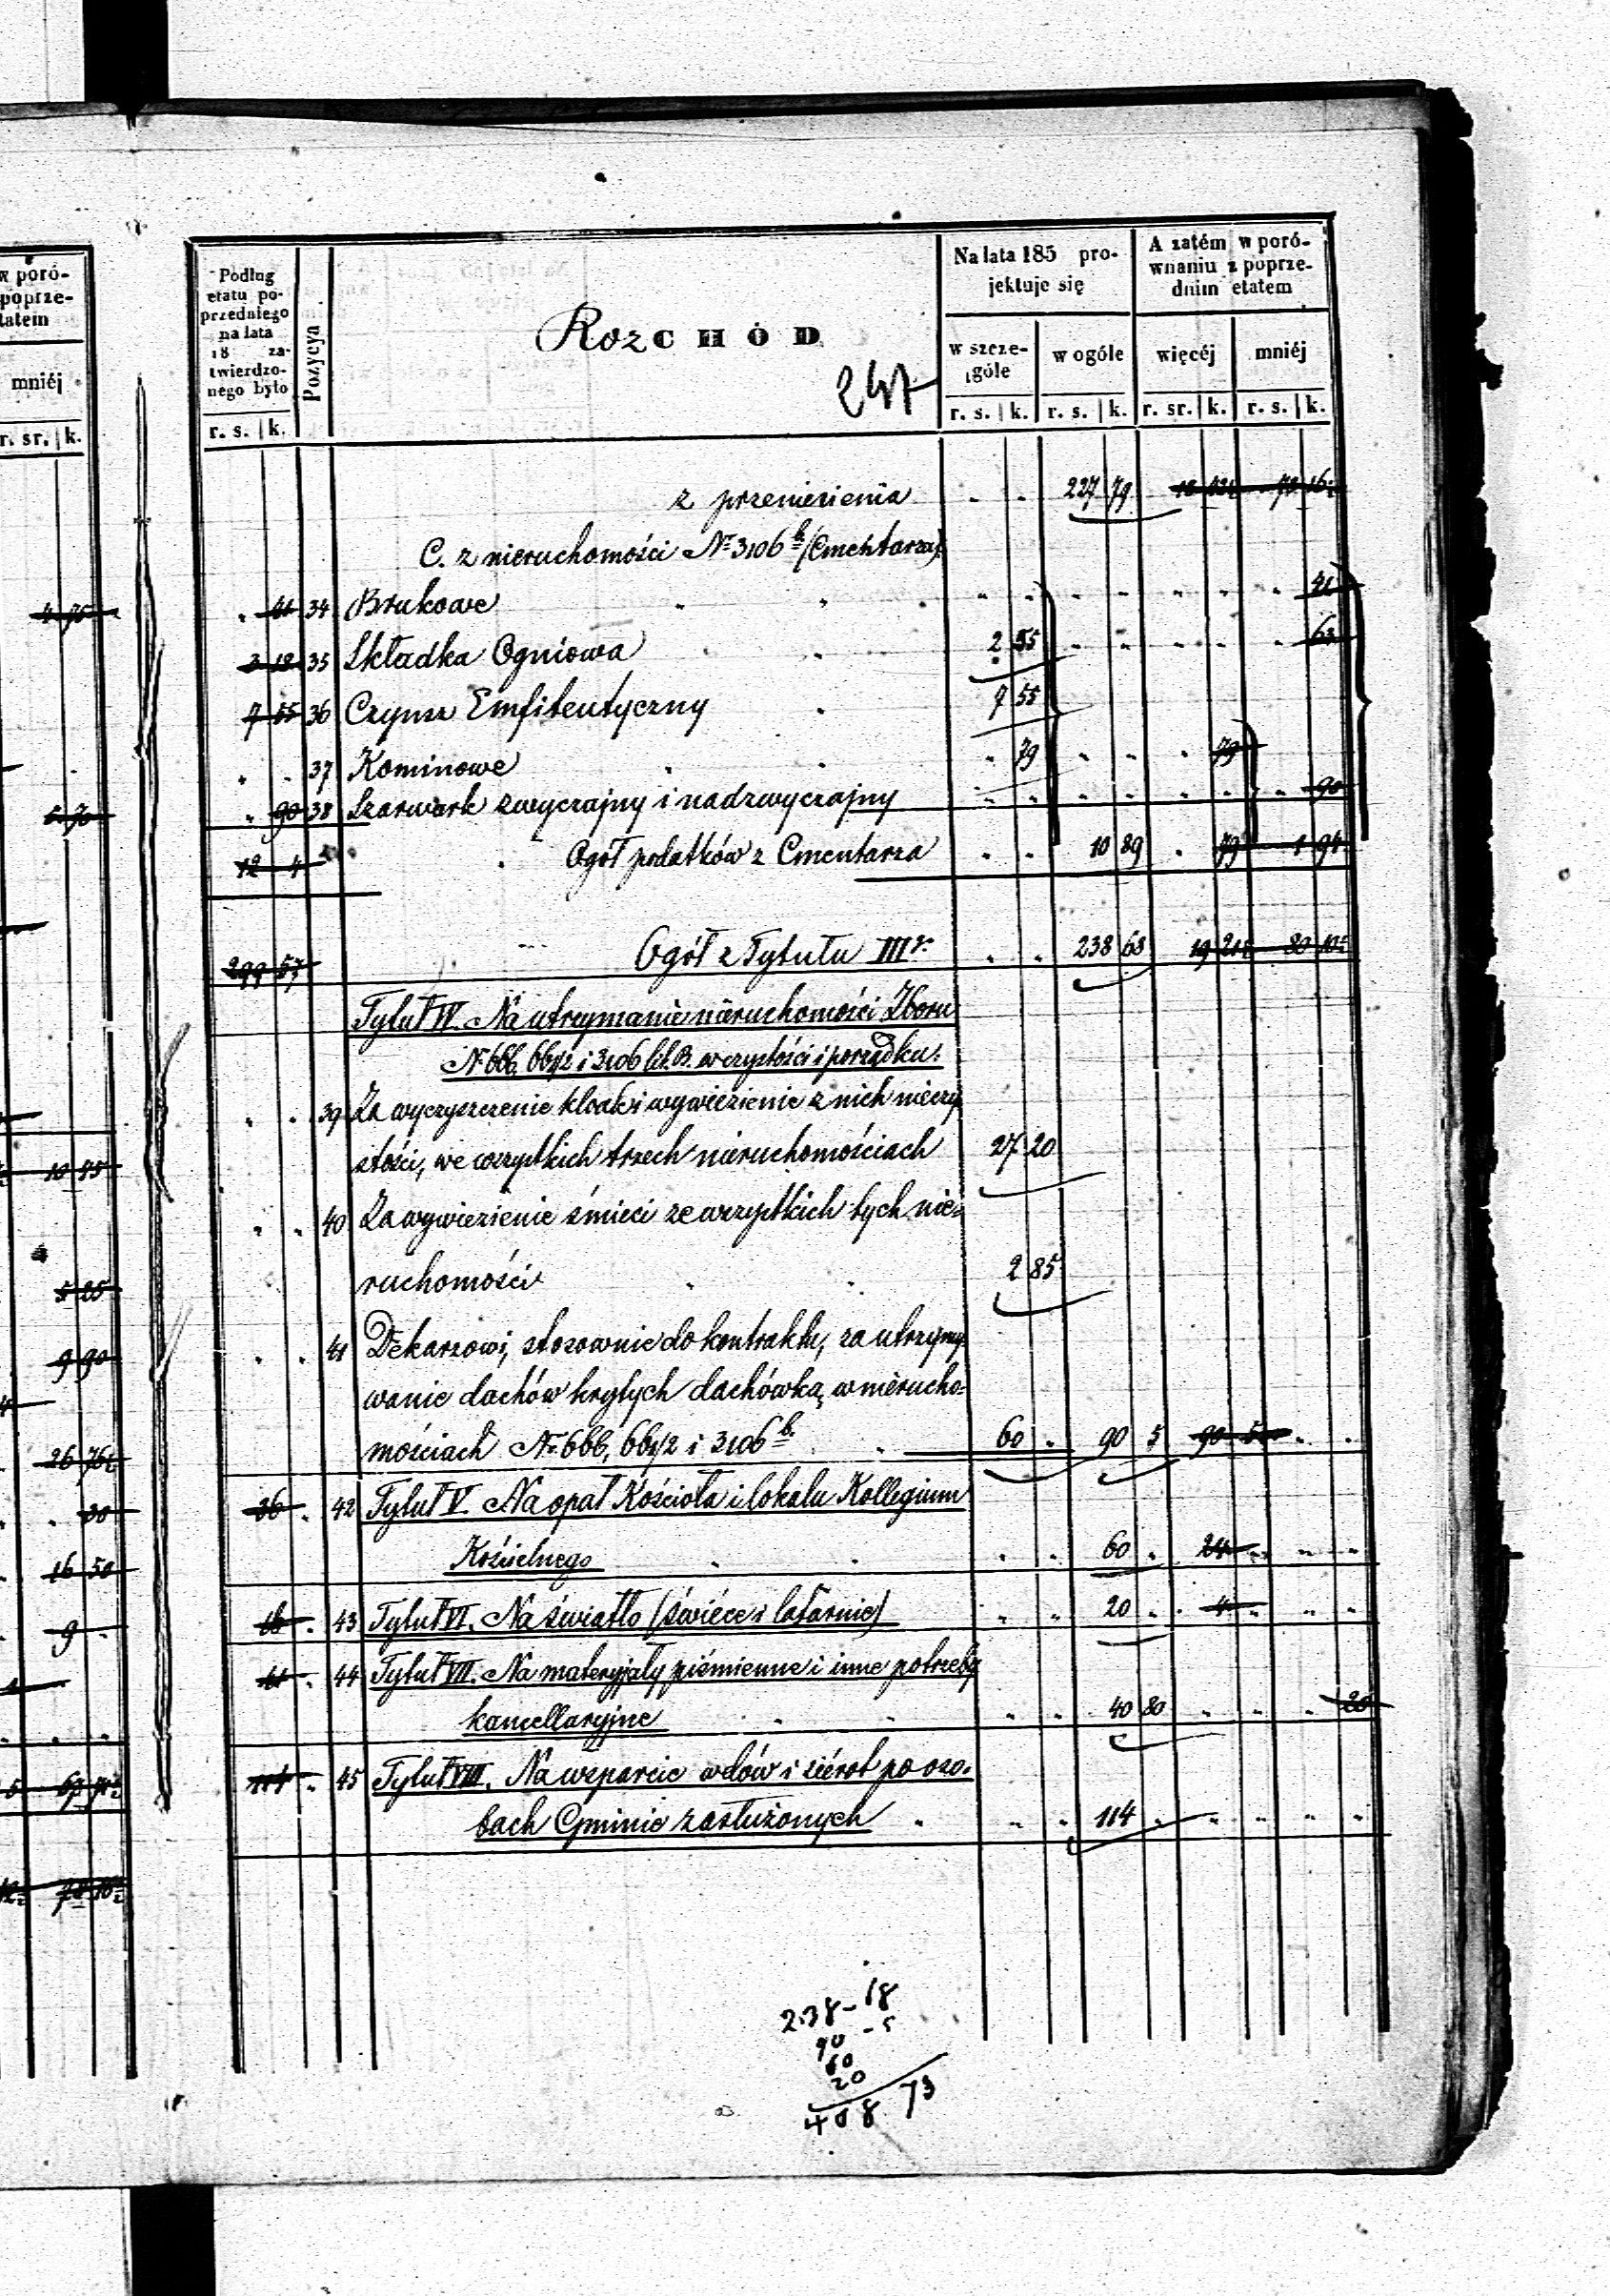 w poró-
poprze-
tatem
mniéj
r. sr. k.
4 75
5 70
10 55
5 25
9 90
26 76½
30
16 50
9
Podług etatu po-
przedniego
na lata
18 za-
twierdzo-
nego było
r. s. k.
Pozycya
RozCHÓD
247
Na lata 185 pro-
jektuje się
w szcze-
góle
w ogóle
r. s. k. r. s. k.
A zatém w poró-
wnaniu z poprze-
dnim etatem
więcéj mniéj
r. sr. k. r. s. k.
z przeniesienia 227 79
C. z nieruchomości No 3106 b (Cmentarza)
41 34 Brukowe 41
3 18 35 Składka Ogniowa 2 55 63
7 55 36 Czynsz Emfiteutyczny 7 55
37 Kominowe 79 79
90 38 Szarwark zwyczajny i nadzwyczajny 90
12 4 Ogół podatków z Cmentarza 10 89 79 1 94
299 57 Ogół z Tytułu IIIo 238 68 19 21½ 80 10½
Tytuł IV. Na utrzymanie nieruchomości Zboru
No 666, 667/2 i 3106 lit. B. w czystości i porządku.
39 Za wyczyszczenie kloak i wywiezienie z nich nieczy-
stości, we wszystkich trzech nieruchomościach 27 20
40 Za wywiezienie śmieci ze wszystkich tych nie-
ruchomości 2 85
41 Dekarzowi, stosownie do kontraktu, za utrzymy-
wanie dachów krytych dachówką, w nierucho-
mościach No 666, 667/2 i 3106 b. 60 90 5 90 5
36 42 Tytuł V. Na opał Kościoła i lokalu Kollegium
Kościelnego 60 24
16 43 Tytuł VI. Na światło (świece i latarnie) 20 4
41 44 Tytuł VII. Na materyjały piśmienne i inne potrzeby
kancellaryjne 40 80 20
114 45 Tytuł VIII. Na wsparcie wdów i siérot po oso-
bach Gminie zasłużonych 114
238-18
90 - 5
60
20
408 73